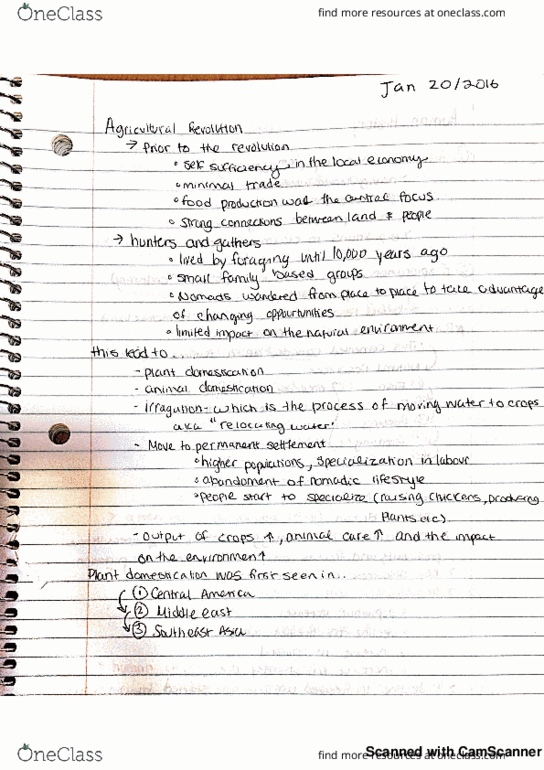 OneClass
find more resources at oneclass.com
Jan 20/2016
Agricultural Revolution
→ Prior to the revolution
• self sufficiency in the local economy
• minimal trade
• food production was the central focus
• strong connections between land & people
→ hunters and gathers
• lived by foraging until 10,000 years ago
• small family based groups
• Nomads wandered from place to place to take advantage
of changing opportunities
• limited impact on the natural environment
this lead to...
- plant domestication
- animal domestication
- irragution- which is the process of moving water to crops
aka "relocating water"
- Move to permanent settlement
• higher populations, specialization in labour
• abandoment of nomadic lifestyle
• people start to specialize (raising chickens, producing
plants etc)
- output of crops ↑, animal care ↑ and the impact
on the environment ↑
Plant domestication was first seen in..
① Central America
② Middle east
③ Southeast Asia
Scanned with CamScanner
OneClass
find more resources at oneclass.com